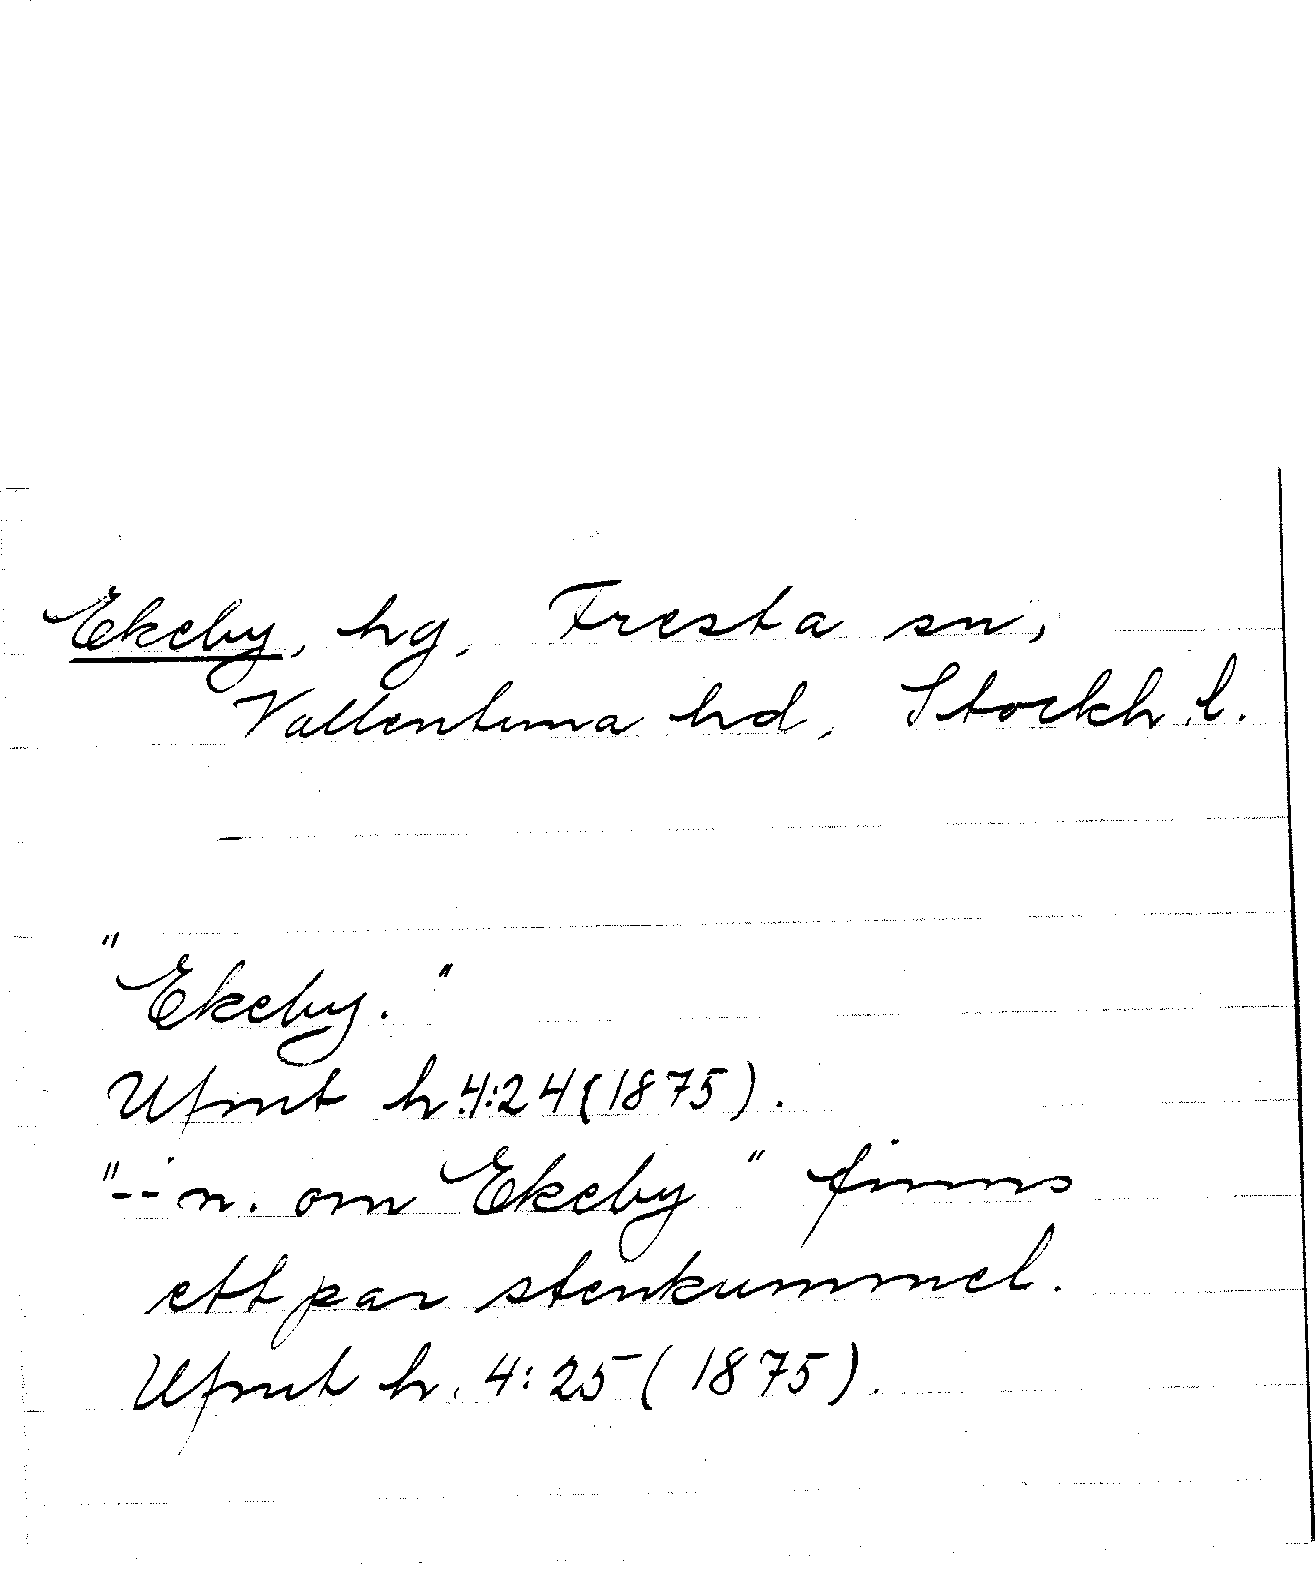 Ekeby, hg, Fresta sn,
Vallentuna hd, Stockh l.
"Ekeby."
Ufmt h. 4:24 (1875).
"-- n. om Ekeby" finns
ett par stenkummel.
Ufmt h. 4:25 (1875).